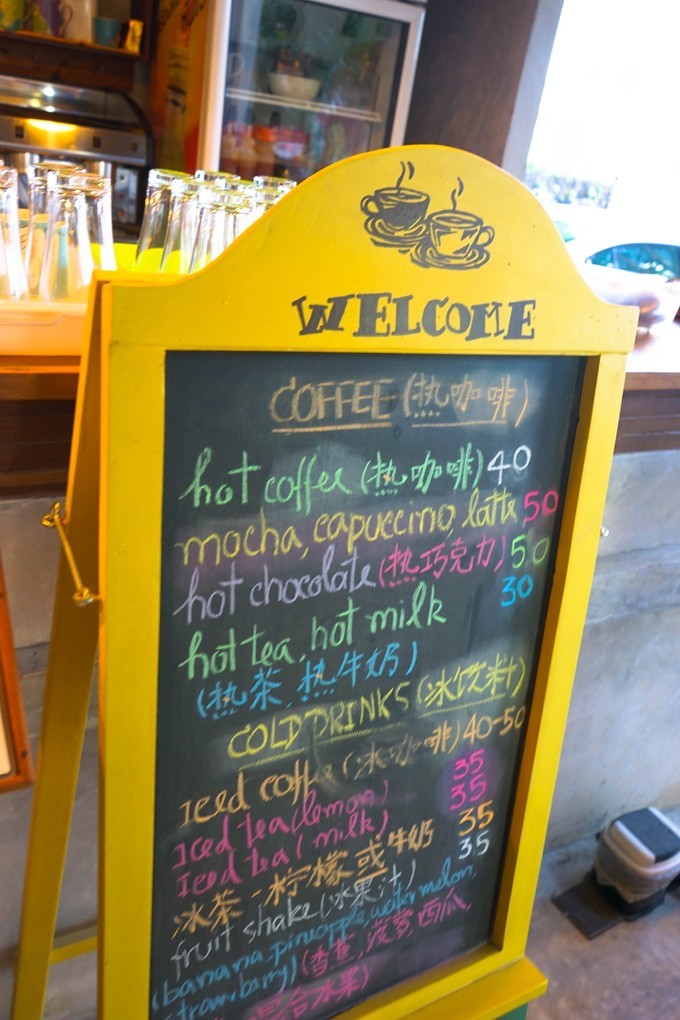 WELCOME
COFFEE (热咖啡)
hot coffee (热咖啡) 40
mocha, capuccino, latte 50
hot chocolate (热巧克力) 50
hot tea, hot milk 30
(热茶, 热牛奶)
COLD DRINKS (冰饮料)
Iced coffee (冰咖啡) 40-50
Iced tea (lemon) 35
Iced tea (milk) 35
冰茶 - 柠檬或牛奶 35
fruit shake (冰果汁) 35
(banana, pineapple, watermelon,
strawberry) (香蕉, 菠萝, 西瓜,
混合水果)